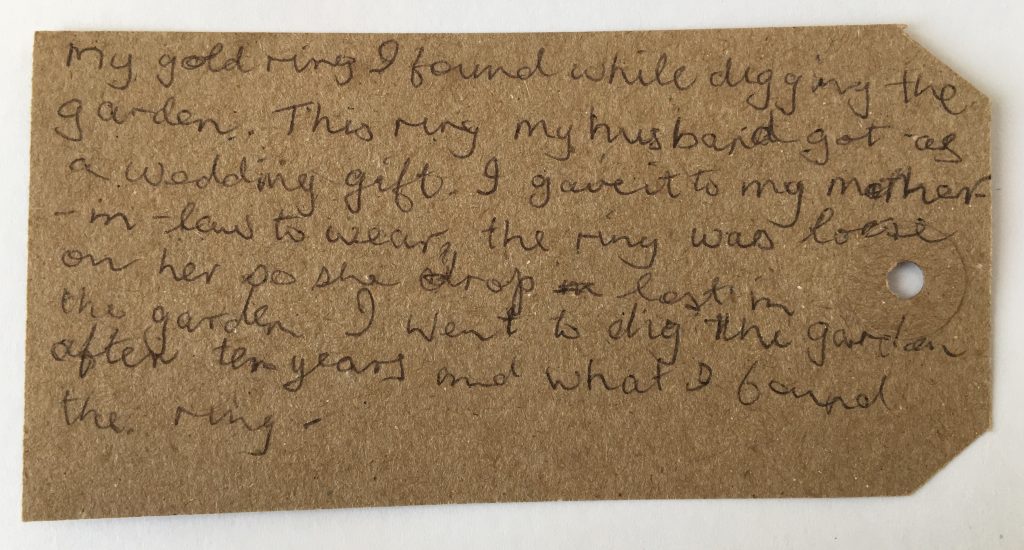 My gold ring I found while digging the
garden. This ring my husband got as
a wedding gift. I gave it to my mother-
-in-law to wear, the ring was loose
on her so she drop lost in
the garden I went to dig the garden
after ten years and what I found
the ring -